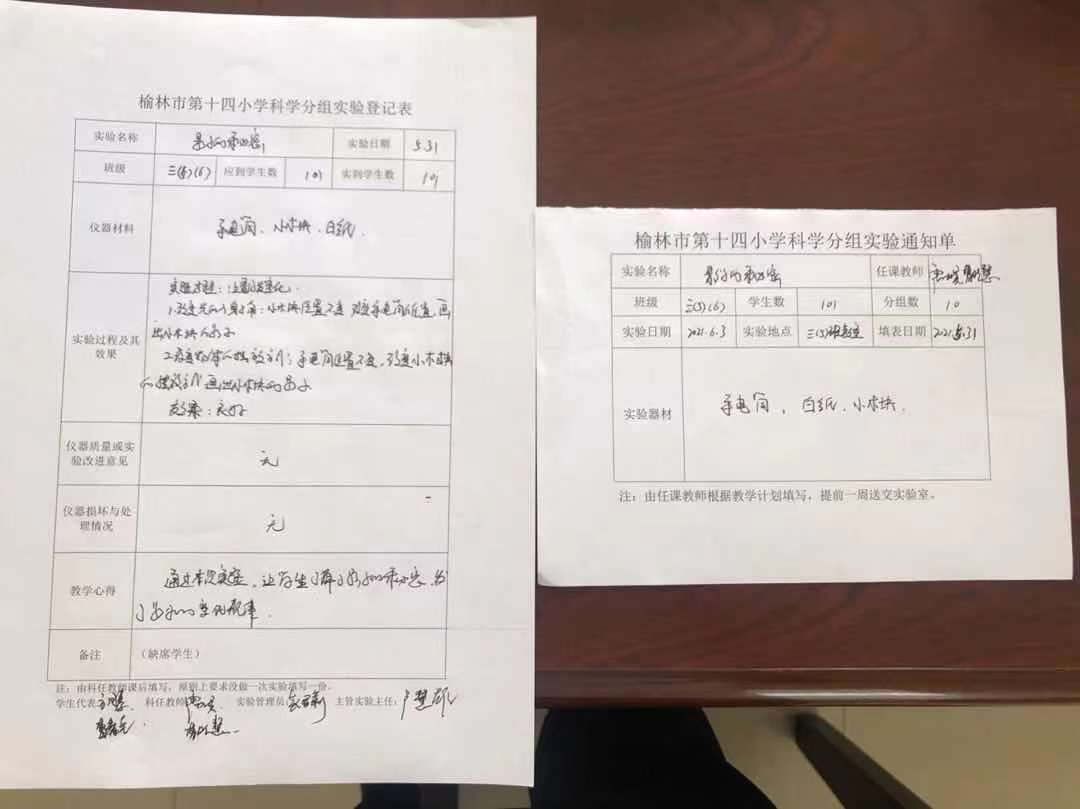 榆林市第十四小学科学分组实验登记表
实验名称 影子的秘密 实验日期 5.31
班级 三(5)(6) 应到学生数 101 实到学生数 101
仪器材料 手电筒、小木块、白纸.
实验过程及其效果
实验过程:
1.改变光的 小木块位置不变 改变手电筒位置,画
出小木块的影子
2.改变物体的摆放方式:手电筒位置不变,改变小木块
的摆放方式 画出小木块的影子
效果:良好
仪器质量或实验改进意见 无
仪器损坏与处理情况 无
教学心得 通过本次实验,让学生了解了影子的秘密,
了影子的变化规律.
备注 (缺席学生)
注:由科任教师课后填写,原则上要求没做一次实验填写一份。
学生代表: 科任教师 实验管理员: 主管实验主任:
榆林市第十四小学科学分组实验通知单
实验名称 影子的秘密 任课教师
班级 三(5)(6) 学生数 101 分组数 10
实验日期 2021.6.3 实验地点 三(5)班教室 填表日期 2021.5.31
实验器材 手电筒,白纸、小木块.
注:由任课教师根据教学计划填写,提前一周送交实验室。